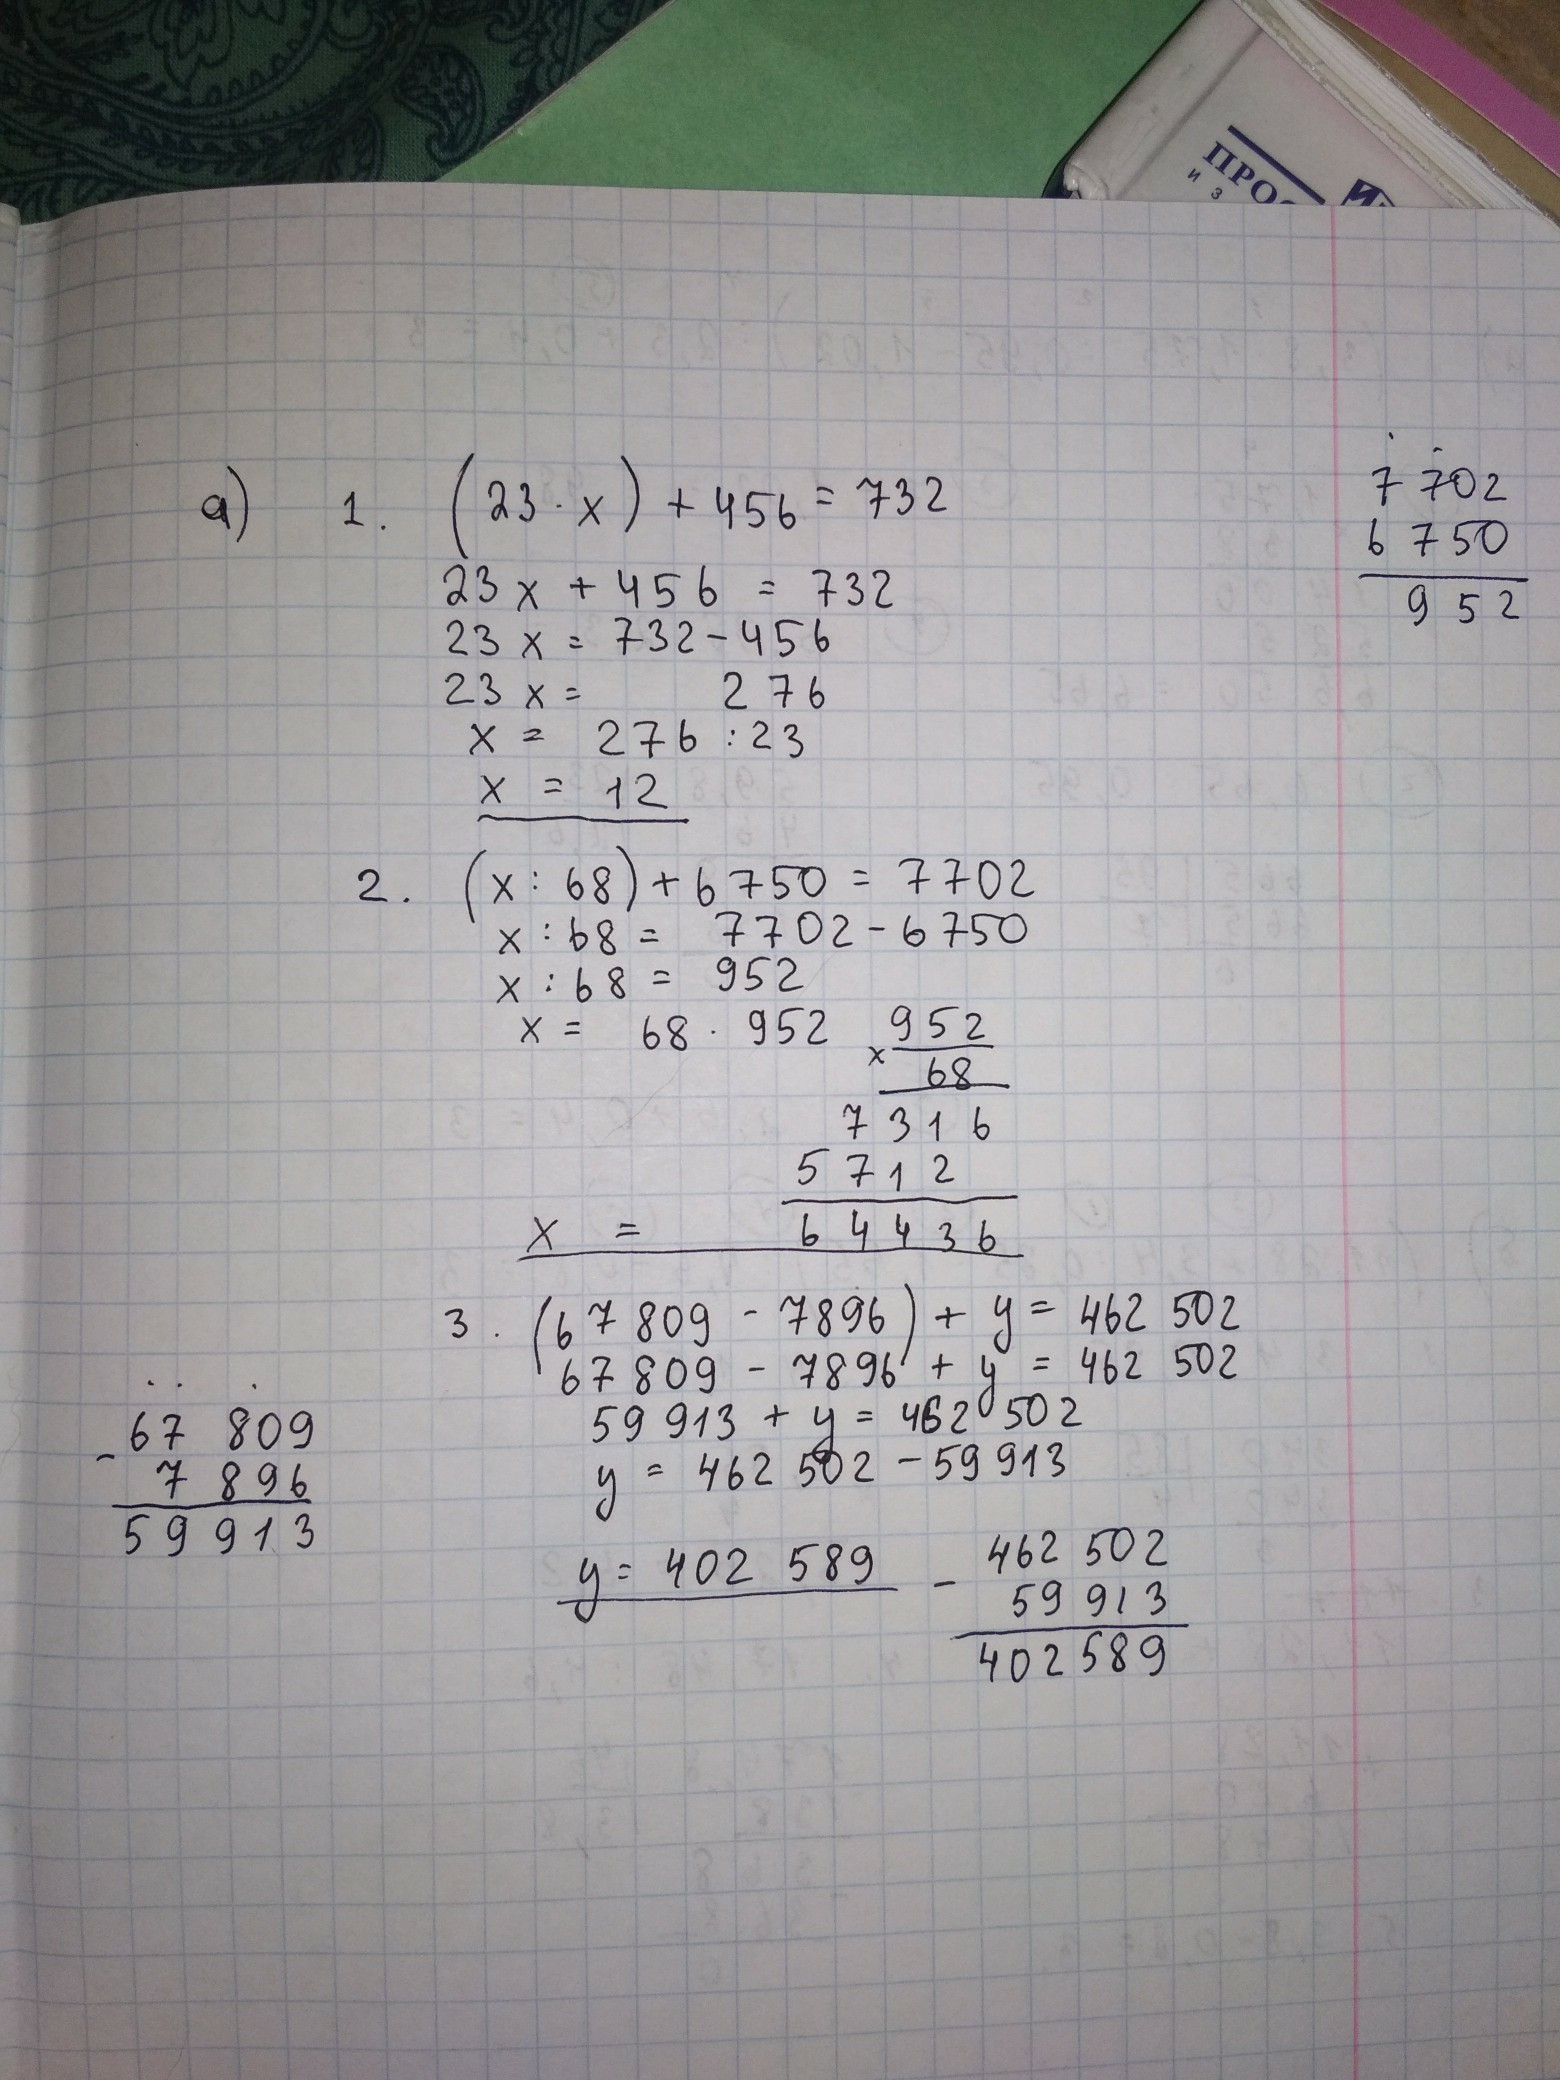 ПРОС
ИЗ
а) 1. (23 · x) + 456 = 732
23x + 456 = 732
23x = 732 - 456
23x = 276
x = 276 : 23
x = 12
7702
6750
952
2. (x : 68) + 6750 = 7702
x : 68 = 7702 - 6750
x : 68 = 952
x = 68 · 952
952
x 68
7316
5712
x = 64436
3. (67 809 - 7896) + y = 462 502
67 809 - 7896 + y = 462 502
59 913 + y = 462 502
y = 462 502 - 59 913
y = 402 589
- 67 809
7 896
59 913
- 462 502
59 913
402 589